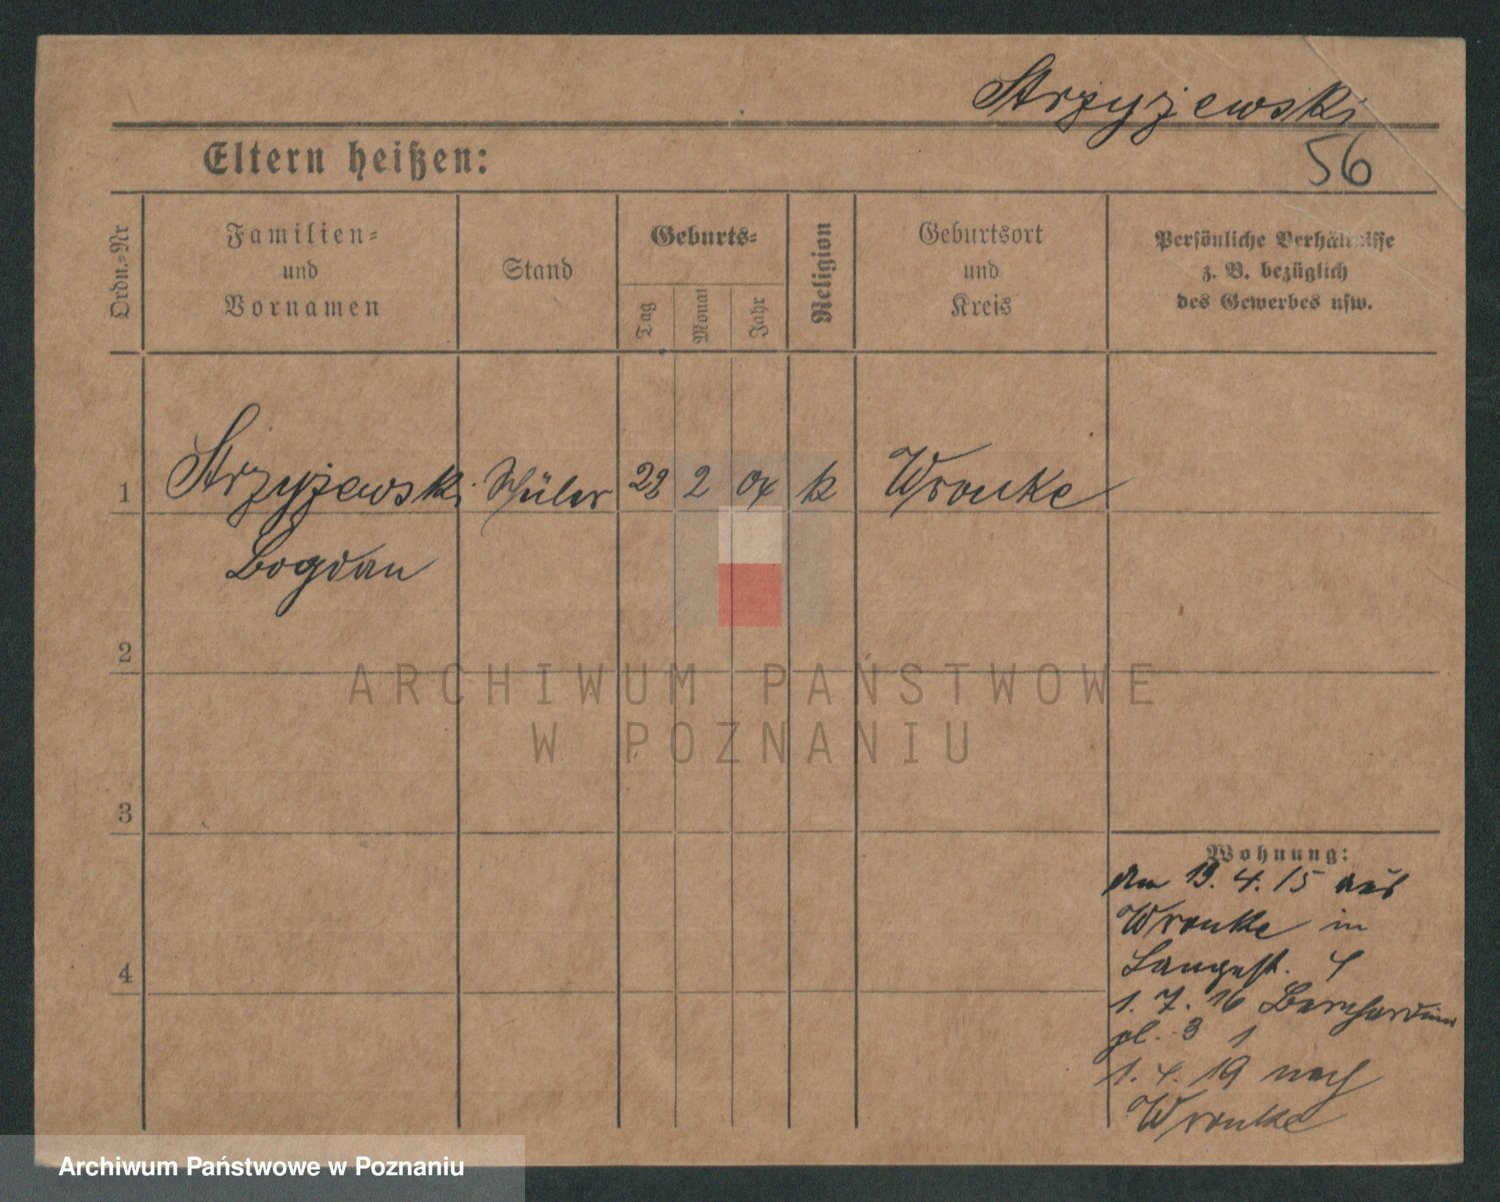 Strzyżewski
56
Eltern heißen:
Ordn.-Nr
Familien-
und
Vornamen
Stand
Geburts-
Tag
Monat
Jahr
Religion
Geburtsort
und
Kreis
Persönliche Verhältnisse
z. B. bezüglich
des Gewerbes usw.
1 Strzyżewski Schüler 2 04 k Wronke
Bogdan
2
3
4
Wohnung:
den 19. 4. 15 aus
Wronke in
Langest. 4
1. 7. 16 Bernhardiner
pl. 3 1
1. 4. 19 nach
Wronke
ARCHIWUM PAŃSTWOWE
W POZNANIU
Archiwum Państwowe w Poznaniu